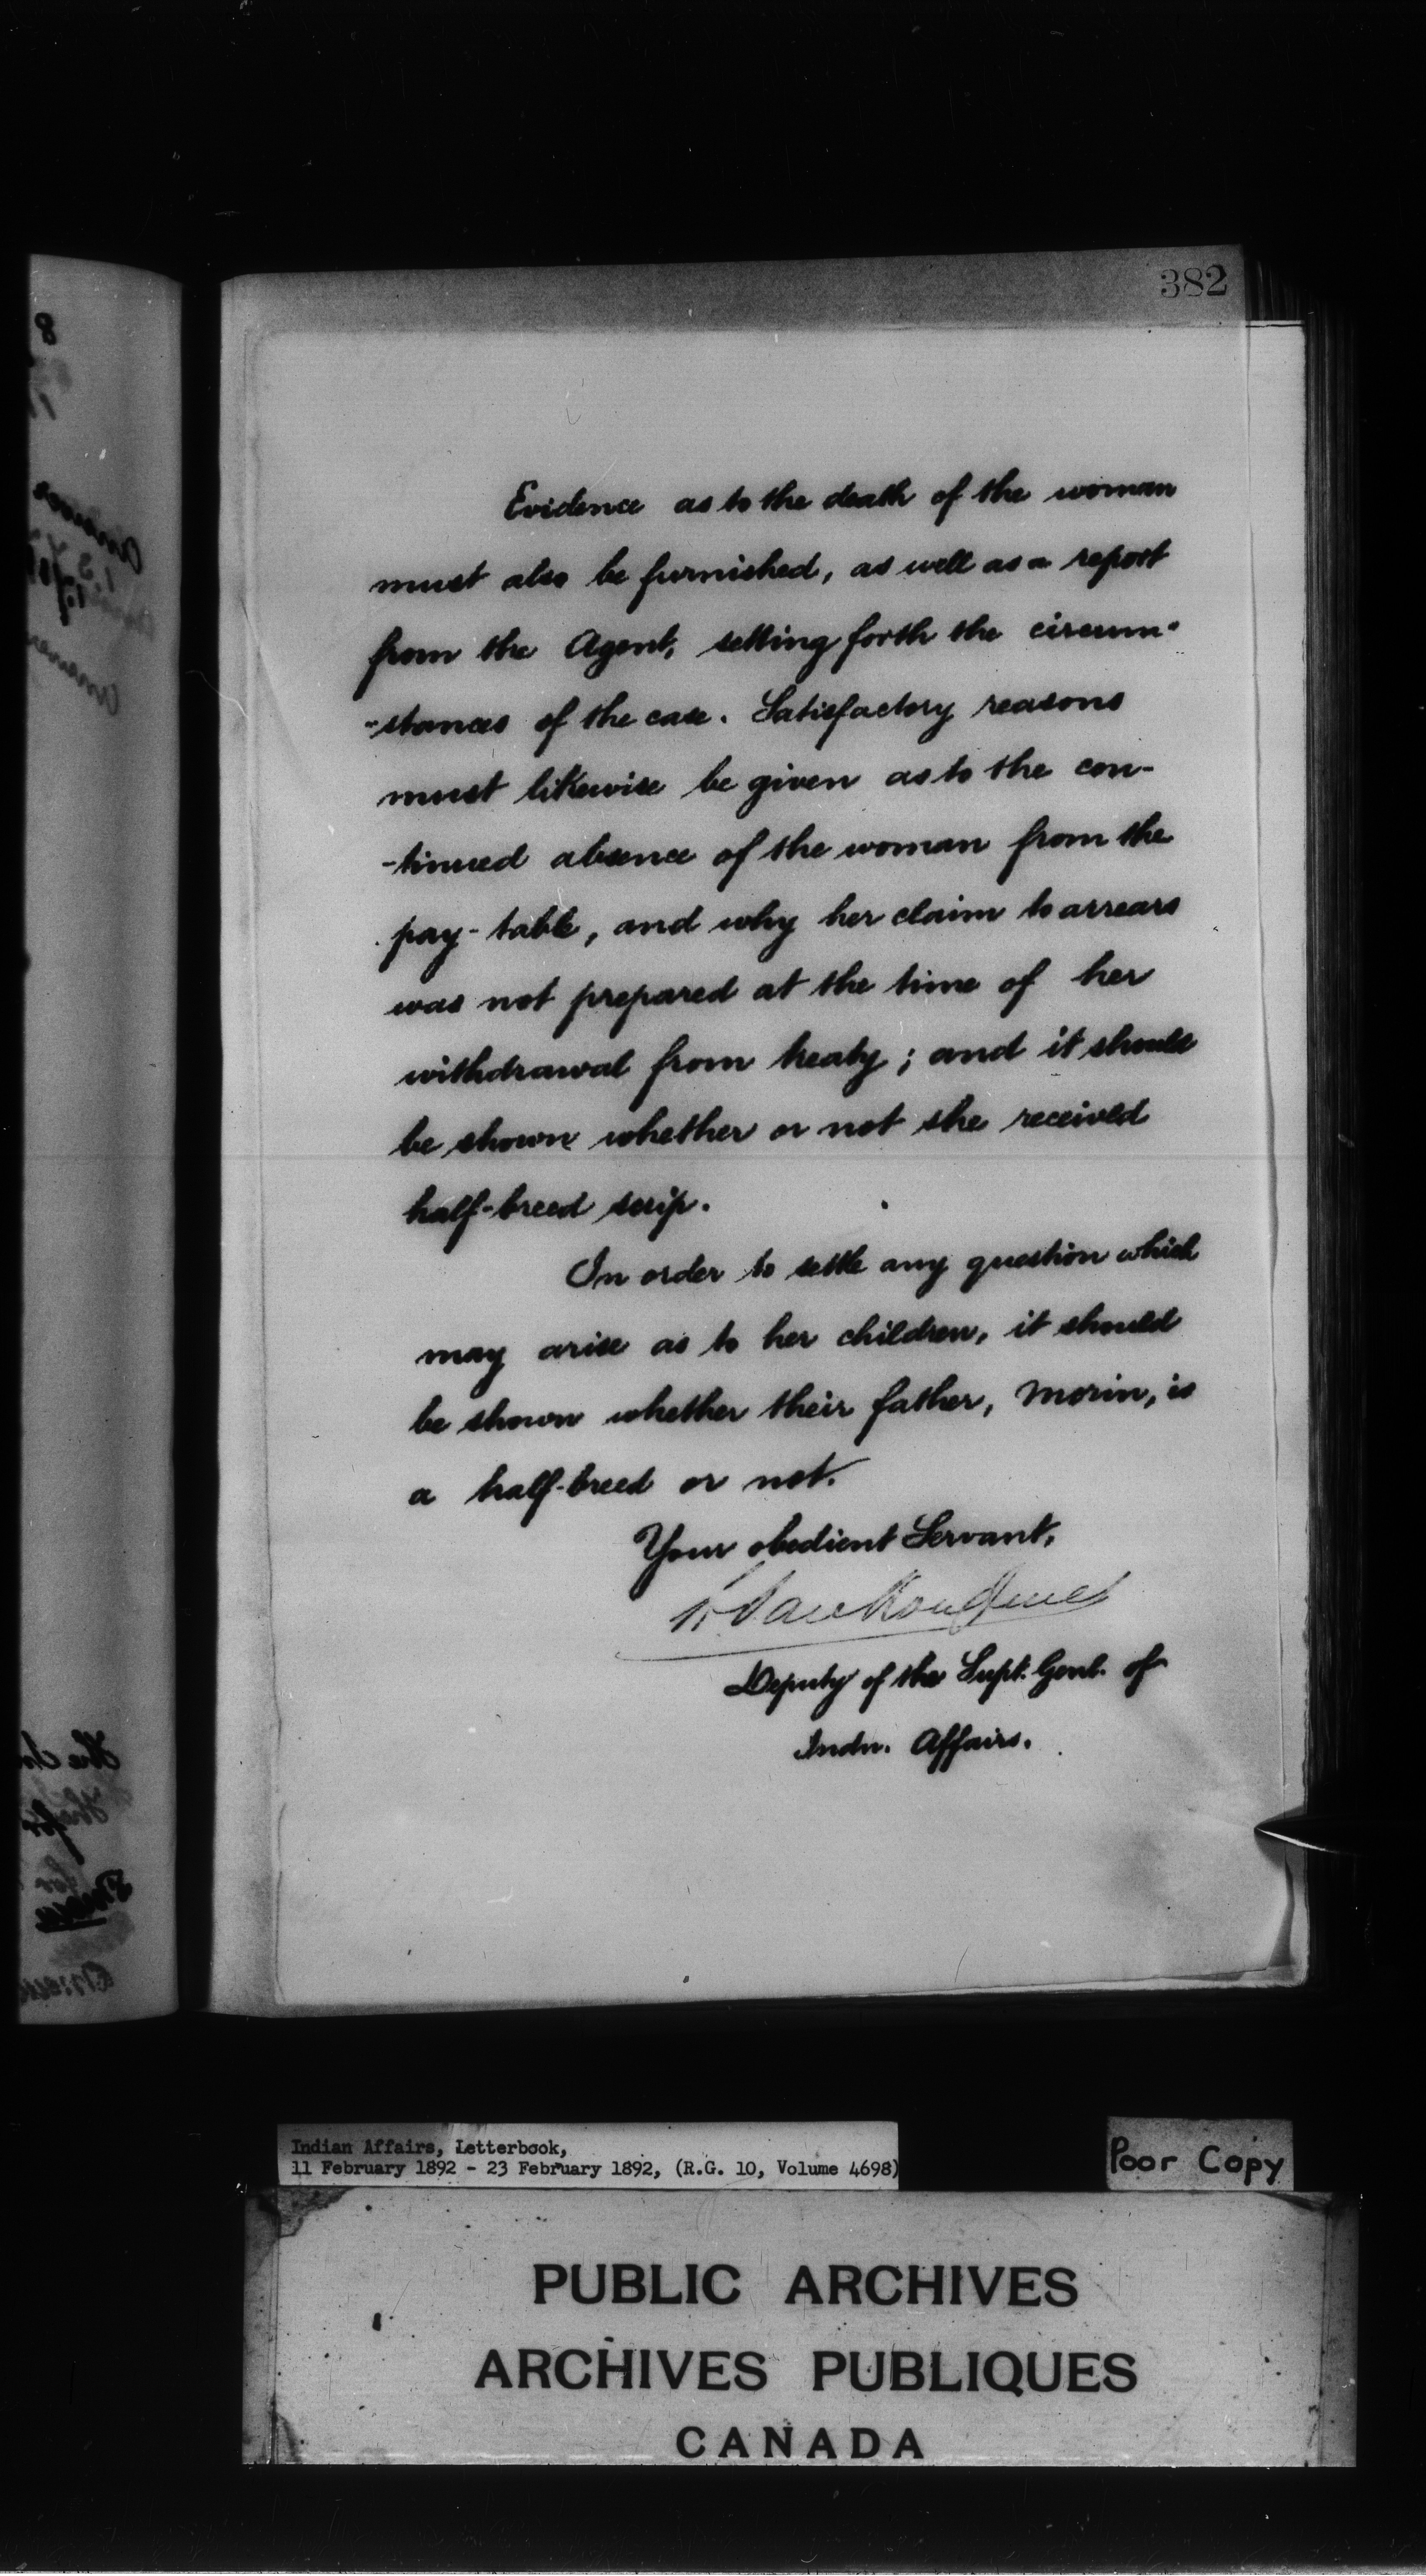 382
Evidence as to the death of the woman
must also be furnished, as well as a report
from the Agent, setting forth the circum-
-stances of the case. Satisfactory reasons
must likewise be given as to the con-
-tinued absence of the woman from the
pay-table, and why her claim to arrears
was not prepared at the time of her
withdrawal from treaty; and it should
be shown whether or not she received
half-breed scrip.
In order to settle any question which
may arise as to her children, it should
be shown whether their father, Morin, is
a half-breed or not.
Your obedient Servant,
L. Vankoughnet
Deputy of the Supt. Genl. of
Indn. Affairs.
Indian Affairs, Letterbook,
11 February 1892 - 23 February 1892, (R.G. 10, Volume 4698)
Poor Copy
PUBLIC ARCHIVES
ARCHIVES PUBLIQUES
CANADA